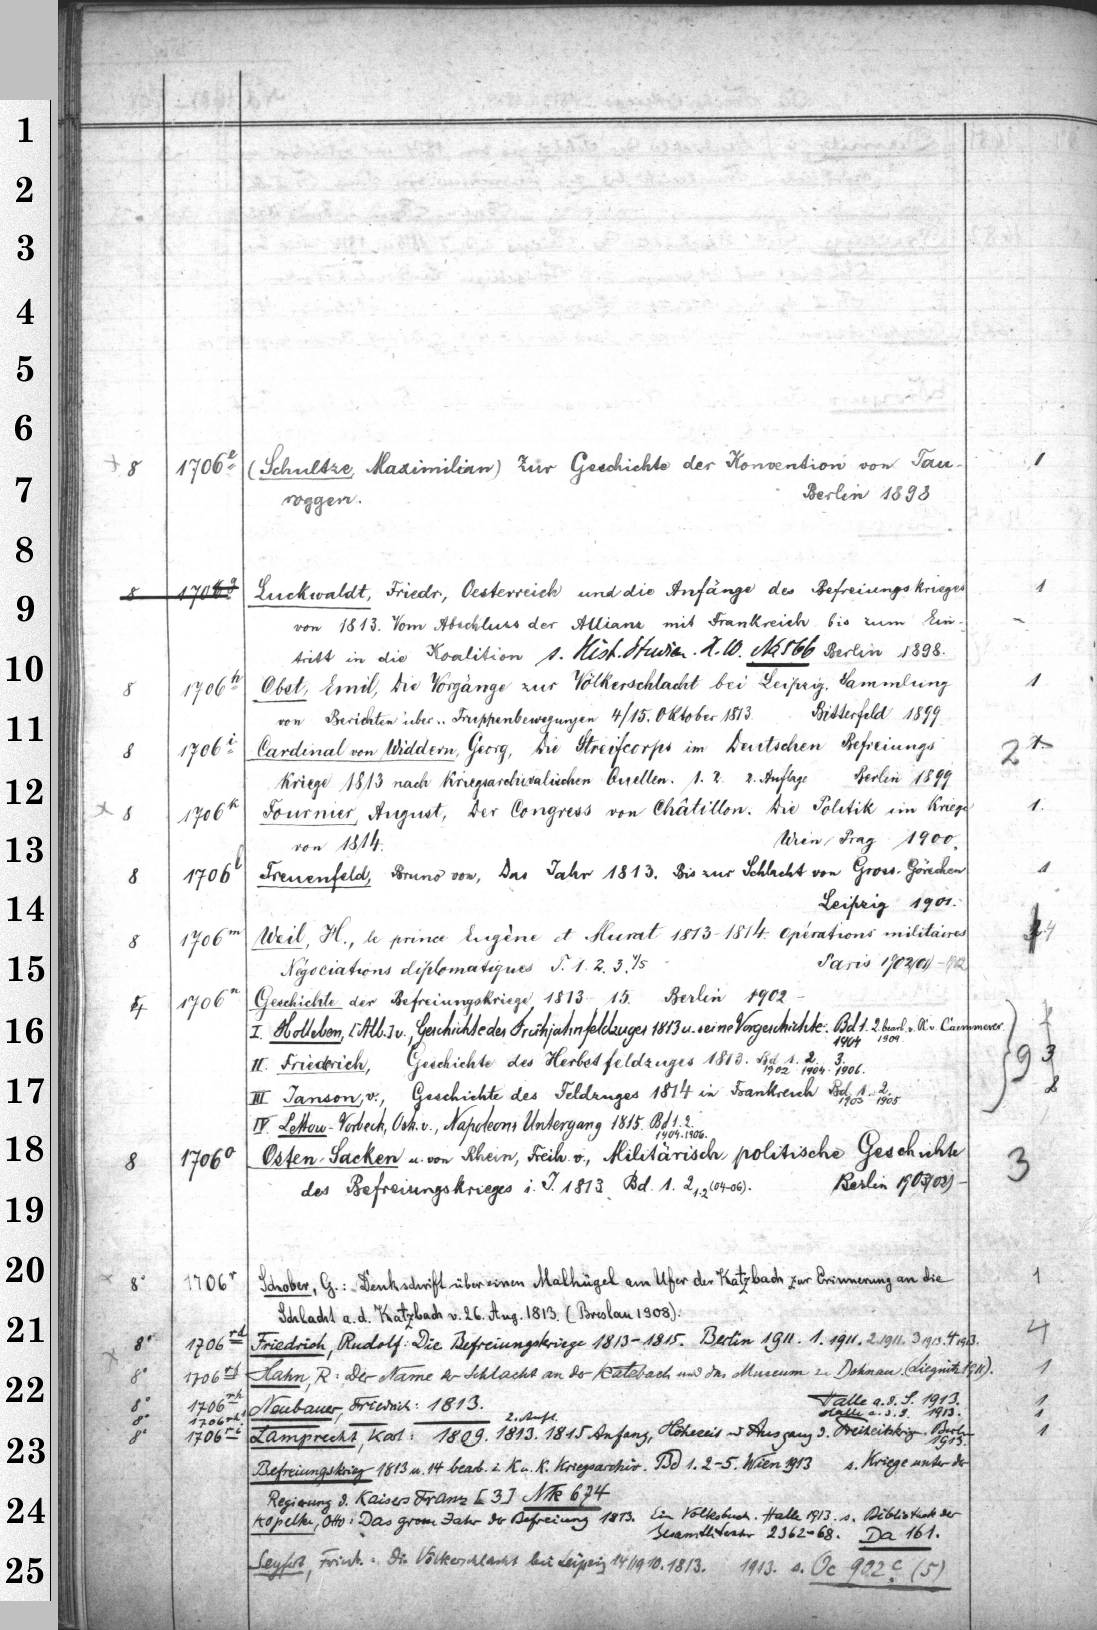 1
2
3
4
5
6
× 8 1706 e (Schultze, Maximilian) Zur Geschichte der Konvention von Tau- 1
7 roggen. Berlin 1898
8
8 1706 g Luckwaldt, Friedr., Oesterreich und die Anfänge des Befreiungskrieges 1
9 von 1813. Vom Abschluss der Allianz mit Frankreich bis zum Ein- -
10 tritt in die Koalition s. Hist. Studien. X. No 566 Berlin 1898.
8 1706 h Obst, Emil, Die Vorgänge zur Völkerschlacht bei Leipzig. Sammlung 1
11 von Berichten über.. Truppenbewegungen 4/15. Oktober 1813. Bitterfeld 1899
8 1706 i Cardinal von Widdern, Georg, Die Streifcorps im Deutschen Befreiungs 2
12 Kriege 1813 nach Kriegsarchivalischen Quellen. 1. 2. 2. Auflage Berlin 1899
× 8 1706 k Fournier, August, Der Congress von Châtillon. Die Politik im Kriege 1.
13 von 1814. Wien, Prag 1900.
8 1706 l Treuenfeld, Bruno von, Das Jahr 1813. Bis zur Schlacht von Gross-Görschen 1
14 Leipzig 1901.
8 1706 m Weil, H., le prince Eugène et Murat 1813-1814. Opérations militaires 4
15 Négociations diplomatiques T. 1. 2. 3. 4/5 Paris 1902(01)-1902
4 1706 n Geschichte der Befreiungskriege 1813-15. Berlin 1902-
16 I. Holleben, [Alb.] v., Geschichte des Frühjahrsfeldzuges 1813 u. seine Vorgeschichte. Bd 1. 2 bearb. v. R. v. Caemmerer
1904 1909
II. Friederich, Geschichte des Herbstfeldzuges 1813. Bd. 1. 2. 3. 9 3
1902 1904. 1906.
17 III Janson, v., Geschichte des Feldzuges 1814 in Frankreich Bd. 1. 2. 2
1903 1905
IV. Lettow-Vorbeck, Osk. v., Napoleons Untergang 1815. Bd 1. 2.
1904. 1906.
18 8 1706 o Osten-Sacken u. von Rhein, Freih. v., Militärisch politische Geschichte 3
des Befreiungskrieges i. J. 1813. Bd. 1. 2 1-2 (04-06). Berlin 1903(02)-
19
20 × 8° 1706 r Schober, G.: Denkschrift über einen Malhügel am Ufer der Katzbach zur Erinnerung an die 1
Schlacht a. d. Katzbach v. 26. Aug. 1813. (Breslau 1908).
21 8° 1706 rd Friedrich, Rudolf: Die Befreiungskriege 1813-1815. Berlin 1911. 1. 1911. 2. 1911. 3 1913. 4. 1913. 4
× 8° 1706 rf Hahn, R: Der Name der Schlacht an der Katzbach und das Museum zu Dohnau. (Liegnitz 1911). 1
22 8° 1706 rh Neubauer, Friedrich: 1813. Halle a. d. S. 1913. 1
8° 1706 rh 2. Aufl. Halle a. d. S. 1913. 1
23 8° 1706 ri Lamprecht, Karl: 1809. 1813. 1815 Anfang, Höhezeit u. Ausgang d. Freiheitskrieg. Berlin 1913. 1
Befreiungskrieg 1813 u. 14 bearb. i. K. u. K. Kriegsarchiv. Bd 1. 2-5. Wien 1913 s. Kriege unter der
Regierung d. Kaisers Franz [3] Nk 674
24 Kopelke, Otto: Das grosse Jahr der Befreiung 1813. Ein Volksbuch. Halle 1913. s. Bibliothek der
Gesamtliteratur 2362-68. Da 161.
25 Seyfert, Friedr.: Die Völkerschlacht bei Leipzig 14/19.10.1813. 1913. s. Oc 902 c (5)